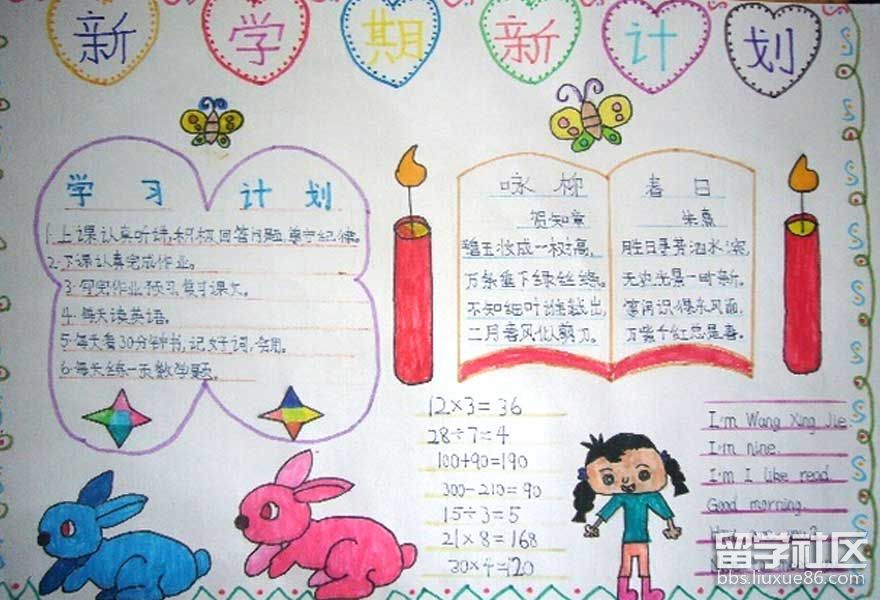 新学期新计划
学习计划
1.上课认真听讲,积极回答问题,遵守纪律。
2.下课认真完成作业。
3.写完作业预习,复习课文。
4.每天读英语。
5.每天看30分钟书,记好词,会用。
6.每天练一页数学题。
咏柳
贺知章
碧玉妆成一树高,
万条垂下绿丝绦。
不知细叶谁裁出,
二月春风似剪刀。
春日
朱熹
胜日寻芳泗水滨,
无边光景一时新。
等闲识得东风面,
万紫千红总是春。
12×3=36
28÷7=4
100+90=190
300-210=90
15÷3=5
21×8=168
30×4=120
I'm Wang Xing Jie.
I'm nine.
I'm I like read.
Good morning.
留学社区
bbs.liuxue86.com